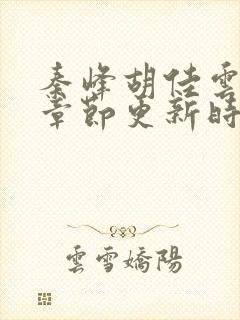 秦峰胡佳雲
章節更新時
雲雪嬌陽